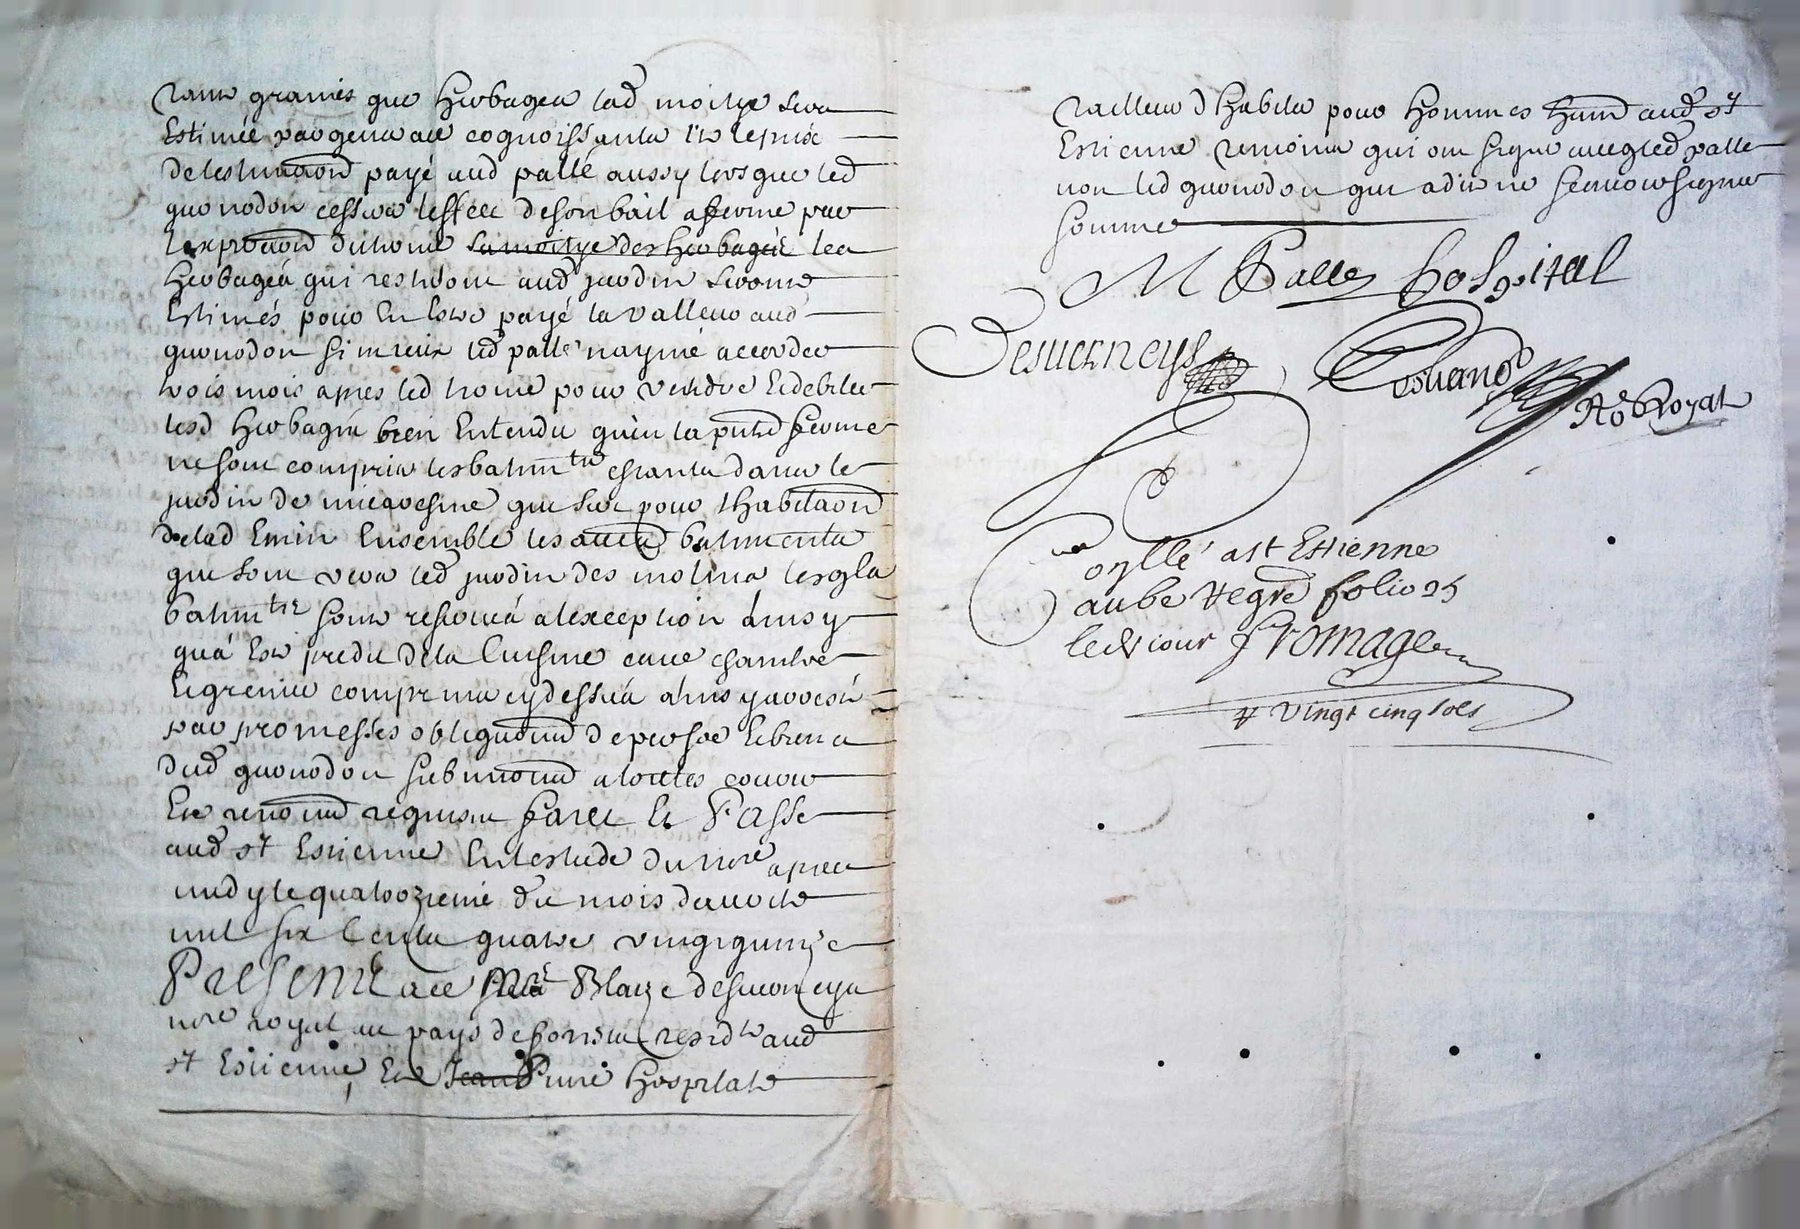 tant graines que herbages lad moitye sera
Estimée par gens a ce cognoissants et le prix
de lestimaõn payé aud pallé aussy lorsque led
guonodon cessera leffect de son bail a ferme par
lexpiraõn du terme la moitye des herbages les
herbages qui resteront aud jardin seront
Estimés pour En Estre payé la valleur aud
guonodon si mieux led palle nayme accorder
trois mois apres led terme pour vendre Et debiter
lesd herbages bien Entendu quen la pntd ferme
ne sont compris les batimts estants dans le
jardin de micaresme que sert pour lhabitaõn
de lad Ensemble les autres batiments
que sont vers led jardin des molins lesqls
batimts sont reservés a lexception ainsy
qua Est predit de la Cuisine cave chambre
Et grenier comprins cy dessus ainsy arresté
par promesses obligaõns de persoe Et biens
dud guonodon submiõns a toutes cours
Et renõns requises faict Et Passé
aud st Estienne En lestude du nore apres
midy le quatorzieme du mois daoust
mil six Cents quatre vingt quinze
Presentz a ce Mre Blaize desverneys
nore royal au pays de forestz residt aud
st Estienne, Et Jean Pierre hospital
tailleur dhabits pour hommes aud st
Estienne temoins qui ont signé avec led palle
non led guonodon qui a dit ne scavoir signer
sommé
M Palley hospital
Desverneys
Re Royal
Controyllé a st Estienne
aube Regre folio 25
led jour Fromage
R vingt cinq sols